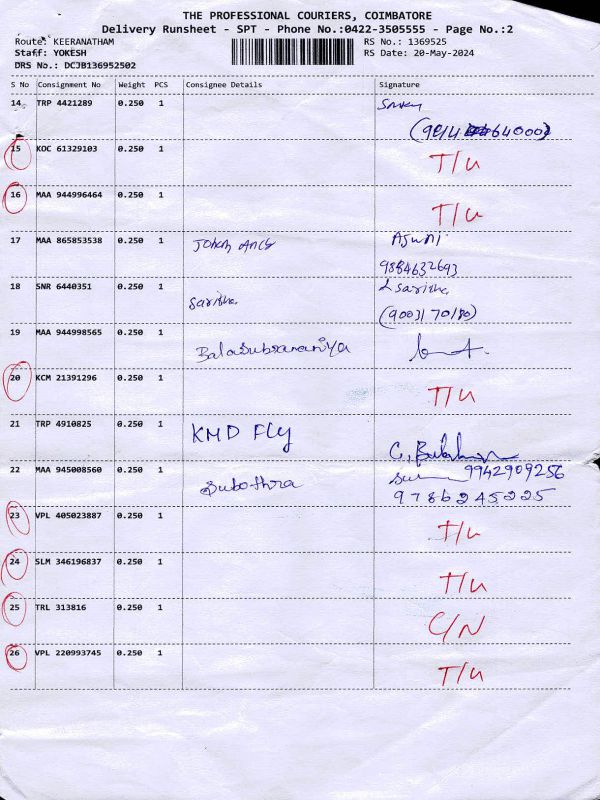 THE PROFESSIONAL COURIERS, COIMBATORE
Delivery Runsheet - SPT - Phone No.:0422-3505555 - Page No.:2
Route: KEERANATHAM RS No.: 1369525
Staff: YOKESH RS Date: 20-May-2024
DRS No.: DCJB136952502
S No Consignment No Weight PCS Consignee Details Signature
14 TRP 4421289 0.250 1
15 KOC 61329103 0.250 1 T/U
16 MAA 944996464 0.250 1 T/U
17 MAA 865853538 0.250 1
9884632693
18 SNR 6440351 0.250 1 Saritha Saritha
(90031 70180)
19 MAA 944998565 0.250 1 Balasubramaniya
20 KCM 21391296 0.250 1 T/U
21 TRP 4910825 0.250 1 KMD Fly
22 MAA 945008560 0.250 1 Subothra 9942909256
9786245225
23 VPL 405023887 0.250 1 T/U
24 SLM 346196837 0.250 1 T/U
25 TRL 313816 0.250 1 C/N
26 VPL 220993745 0.250 1 T/U